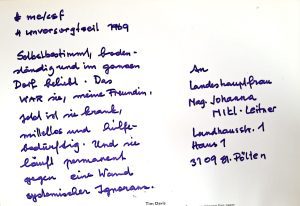 # me/csf
# unversorgtseit 1969
Selbstbestimmt, boden-
ständig und im ganzen
Dorf beliebt. Das
WAR sie, meine Freundin.
Jetzt ist sie krank,
mittellos und hilfe-
bedürftig. Und sie
läuft permanent
gegen eine Wand
systemischer Ignoranz.
An
Landeshauptfrau
Mag. Johanna
Mikl-Leitner
Landhausstr. 1
Haus 1
3109 St. Pölten
Tim Davis